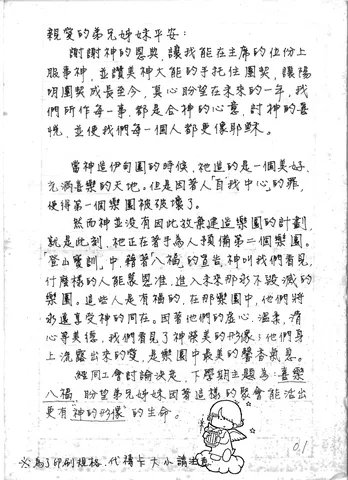 親愛的弟兄姊妹平安：
謝謝神的恩典，讓我能在主席的位份上
服事神，並讚美神大能的手托住團契，讓陽
明團契成長至今，真心盼望在未來的一年，我
們所作每一事，都是合神的心意，討神的喜
悅，並使我們每一個人都更像耶穌。
當神造伊甸園的時候，祂造的是一個美好、
充滿喜樂的天地。但是因著人「自我中心」的罪，
使得第一個樂園被破壞了。
然而神並沒有因此放棄建造樂園的計劃，
就是此刻，祂正在著手為人預備第二個樂園。
「登山寶訓」中，藉著"八福"的宣告，神叫我們看見，
什麼樣的人能蒙恩准，進入未來那永不毀滅的
樂園。這些人是有福的，在那樂園中，他們將
永遠享受神的同在。因著他們的虛心、溫柔、清
心等美德，我們看見了神榮美的形像；他們身
上流露出來的愛，是樂園中最美的馨香氣息。
經同工會討論決定，下學期主題為：喜樂
八福，盼望弟兄姊妹因著這樣的聚會能活出
更有"神的形像"的生命。
※為了印刷規格，代禱卡大小請
0.1